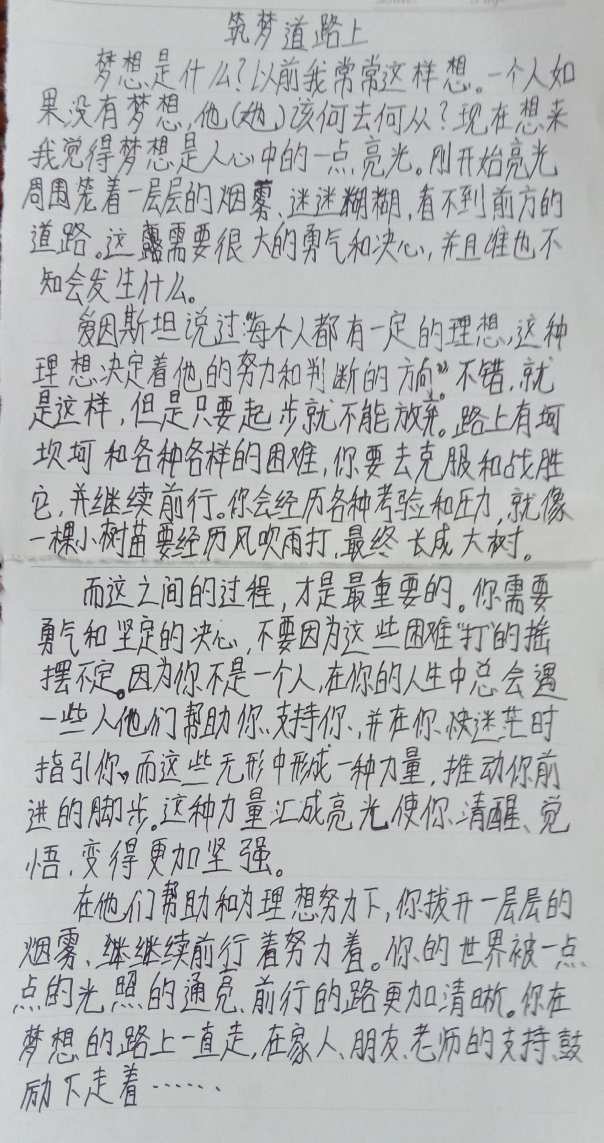 筑梦道路上
梦想是什么?以前我常常这样想。一个人如
果没有梦想,他(她)该何去何从?现在想来
我觉得梦想是人心中的一点亮光。刚开始亮光
周围笼着一层层的烟雾、迷迷糊糊,看不到前方的
道路。这需要很大的勇气和决心,并且谁也不
知会发生什么。
爱因斯坦说过“每个人都有一定的理想,这种
理想决定着他的努力和判断的方向”。不错,就
是这样,但是只要起步就不能放弃。路上有坷
坝坷和各种各样的困难,你要去克服和战胜
它,并继续前行。你会经历各种考验和压力,就像
一棵小树苗要经历风吹雨打,最终长成大树。
而这之间的过程,才是最重要的。你需要
勇气和坚定的决心,不要因为这些困难“打”的摇
摆不定。因为你不是一个人,在你的人生中总会遇
一些人他们帮助你、支持你、并在你快迷茫时
指引你,而这些无形中形成一种力量,推动你前
进的脚步。这种力量汇成亮光使你清醒、觉
悟,变得更加坚强。
在他们帮助和为理想努力下,你拨开一层层的
烟雾、继继续前行着努力着。你的世界被一点
点的光照的通亮、前行的路更加清晰。你在
梦想的路上一直走,在家人、朋友、老师的支持、鼓
励下走着……